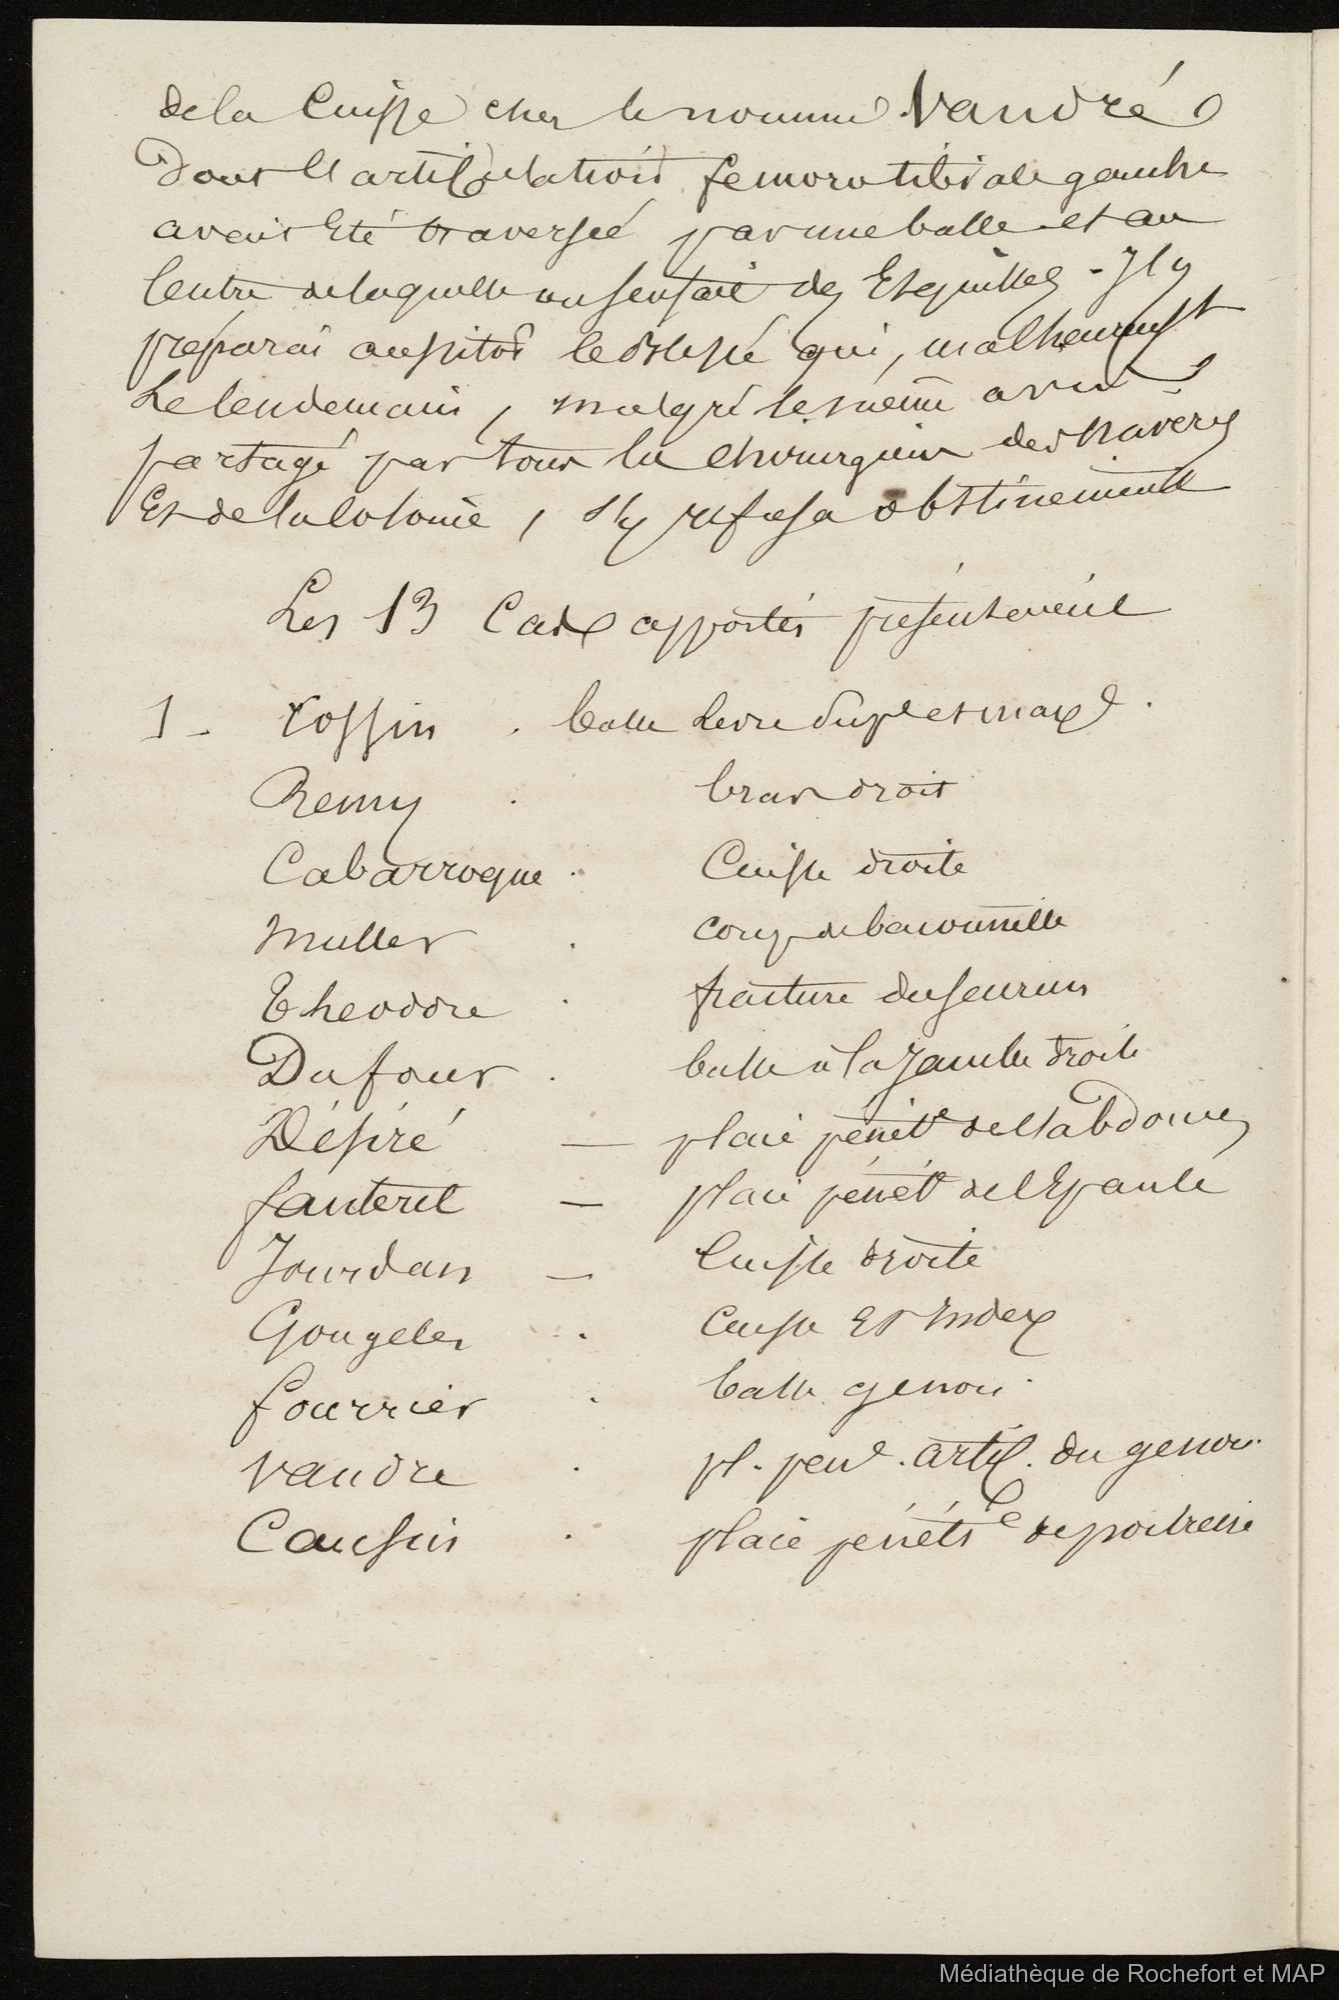 de la Cuisse chez le nommé Vaudré
Dont l'articulation femoro tibiale gauche
avait Eté traversée par une balle et au
Centre de laquelle on sentait des Esquilles - J'y
préparai aussitôt le blessé qui, malheureust
Le lendemain, malgré le même avis
partagé par tous les chirurgiens des navires
Et de la Colonie, s'y refusa obstinement
Les 13 Cas apportés présentevent
1 - Coffin . balle Levre Supre et maxe .
Remy . bras droit
Cabarroque . Cuisse droite
Muller . coup de baionnette
Theodore . fracture du femur
Dufour . balle à la Jambe droite
Désiré — plaie pénét de l'abdomen
fauterel — plaie pénét de l'Epaule
Jourdan — Cuisse droite
Gougeles . Cuisse Et Index
fourrier . balle genou .
Vaudre . pl. pene . artic . du genou .
Causin . plaie pénétre de poitrine
Médiathèque de Rochefort et MAP